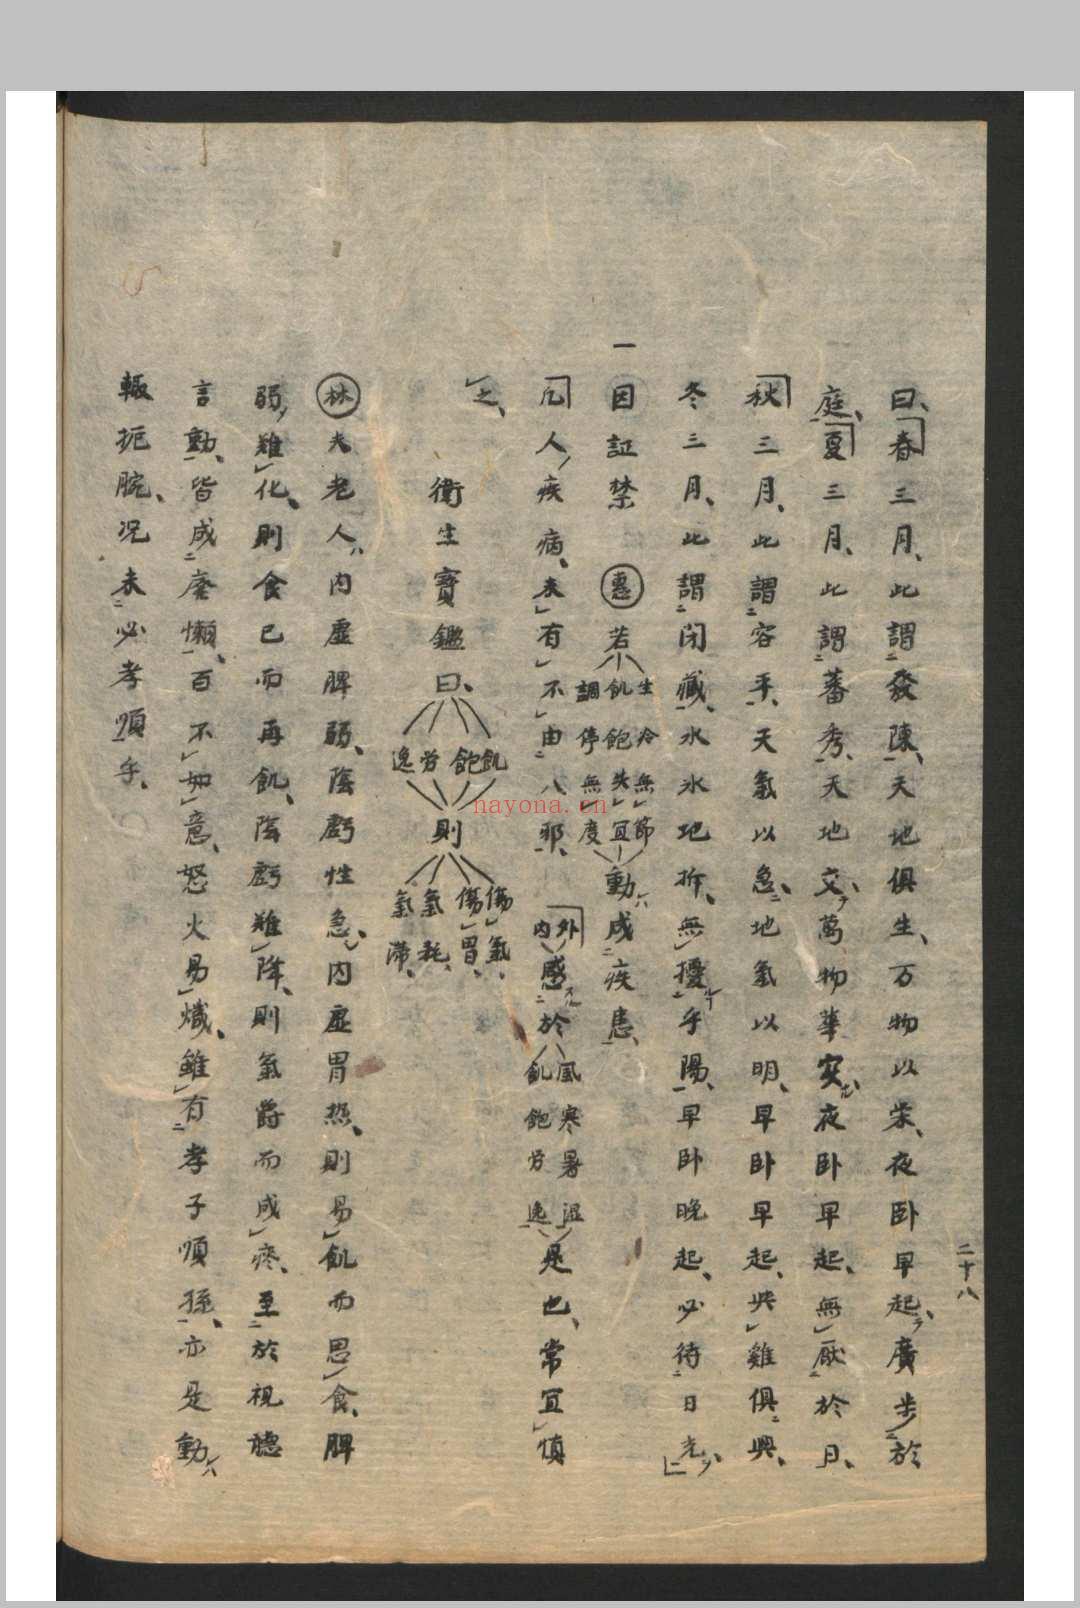 二十八
曰春三月此謂發陳天地俱生万物以栄夜臥早起廣步於
庭夏三月此謂蕃秀天地交萬物華実夜臥早起無厭於日
秋三月此謂容平天氣以急地氣以明早臥早起與雞俱興
冬三月此謂閉藏水氷地拆無擾乎陽早臥晚起必待日光
一因証禁 惠若
生冷無節
飢飽失宜
調停無度
動成疾恙
凡人疾病未有不由八邪
外
内
感於
風寒暑湿
飢飽労逸
是也常宜慎
之
衛生寶鑑曰
飢
飽
労
逸
則
傷氣
傷胃
氣耗
氣滞
林夫老人内虚脾弱陰虧性急内虚胃熱則易飢而思食脾
弱難化則食已而再飢陰虧難降則氣欝而成痰至於視聴
言動皆成廢懶百不如意怒火易熾雖有孝子順孫亦是動
輒扼腕况未必孝順乎
nayona.cn